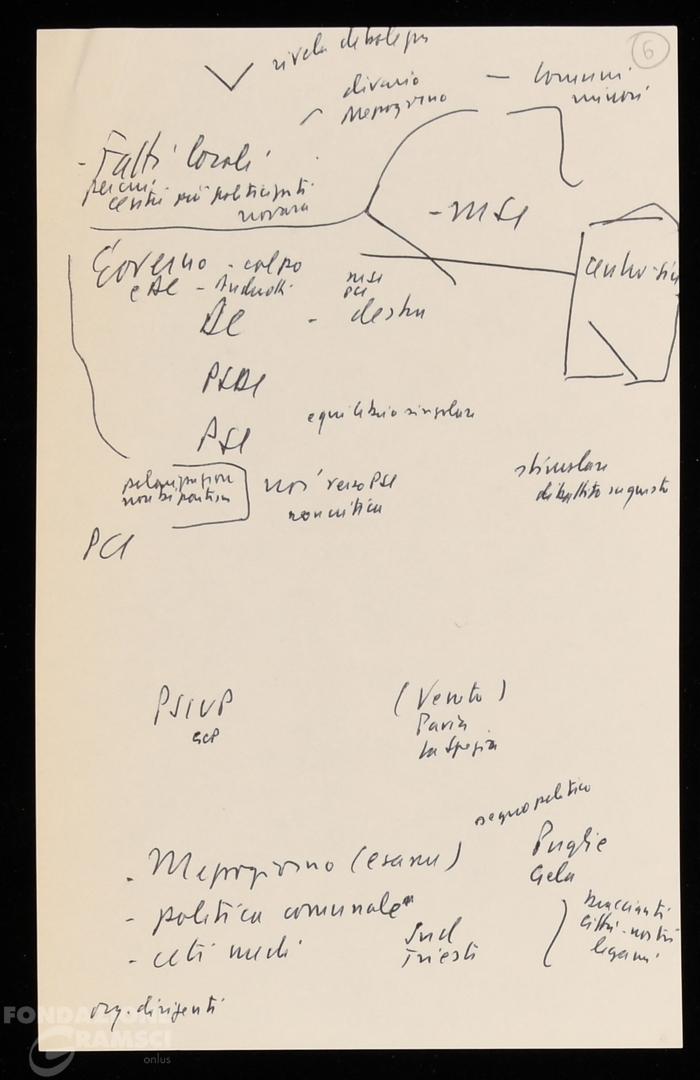 6
rivela debolezza
divario
Mezzogiorno
— Comuni
minori
- Fatti locali
per cui
centri più politicizzati
novara
- MSI
Governo - colpo
e DC - Andreotti
MSI
PCI
centro-sin
DC - destra
PSDI
equilibrio singolare
PSI
polemizzare
non si
noi verso PSI
non critica
stimolare
dibattito su questo
PCI
PSIUP
(Veneto)
Pavia
La Spezia
segno politico
- Mezzogiorno (esame)
Puglie
Gela
- politica comunale
braccianti
città - nostri
legami
- ceti medi
Sud
Trieste
org. dirigenti
FONDAZIONE
GRAMSCI
onlus